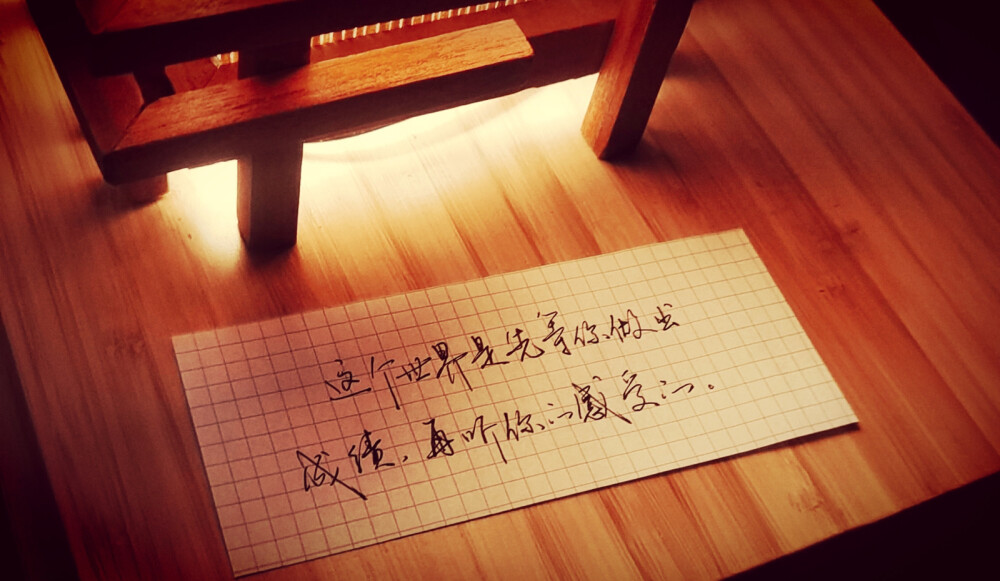 这个世界是先等你做出
成绩，再听你的感受的。